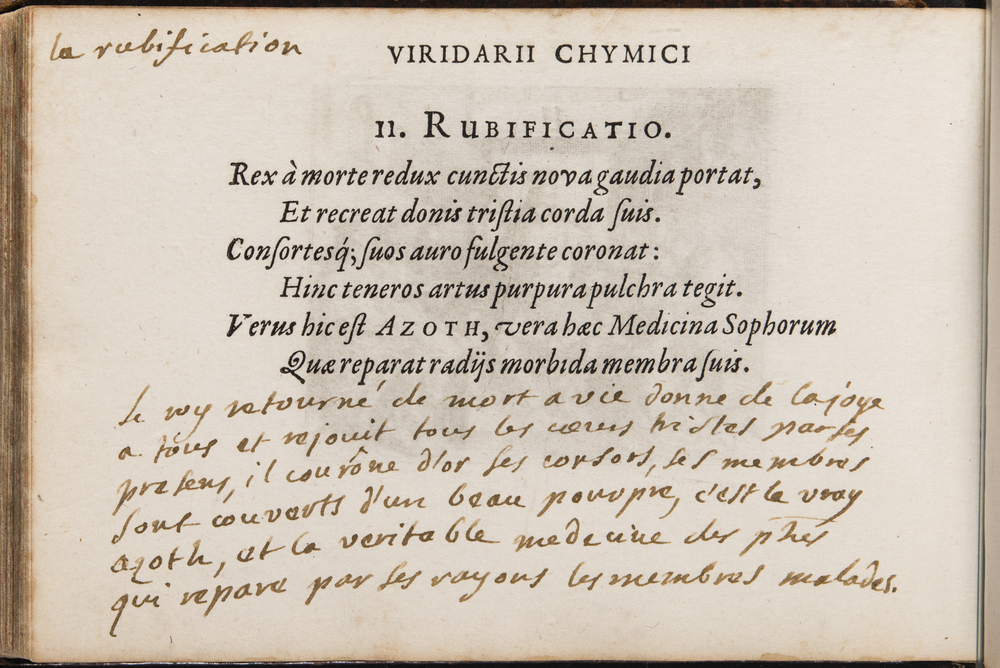 la rubification
VIRIDARII CHYMICI
II. RUBIFICATIO.
Rex à morte redux cunctis nova gaudia portat,
Et recreat donis triſtia corda ſuis.
Conſortesq́; ſuos auro fulgente coronat:
Hinc teneros artus purpura pulchra tegit.
Verus hic eſt AZOTH, vera hæc Medicina Sophorum
Quæ reparat radijs morbida membra ſuis.
le roy retourné de mort a vie donne de la joye
a tous et rejouit tous les cœurs tristes par ses
presens, il courône d'or ses consors, ses membres
sont couverts d'un beau pourpre, c'est le vray
azoth, et la veritable medecine des phes
qui repare par ses rayons les membres malades.